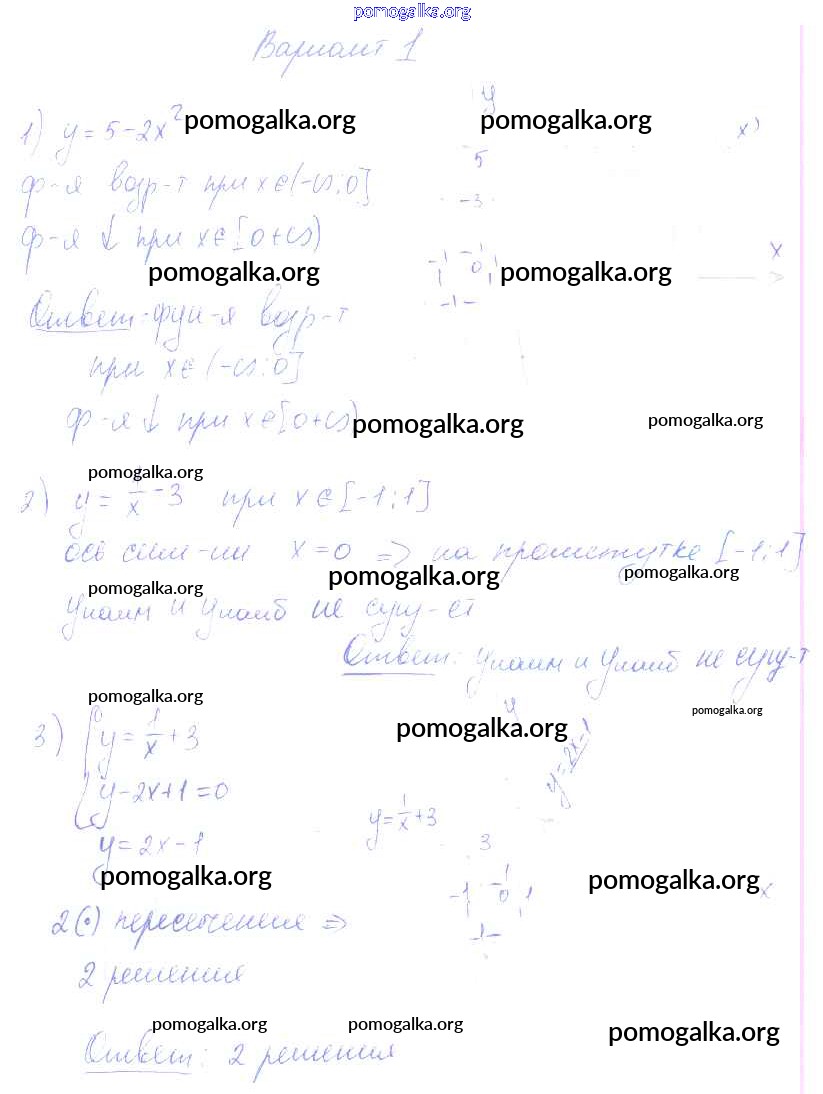 pomogalka.org
Вариант 1
1) y = 5 - 2x² pomogalka.org
ф-я возр-т при x ∈ (-∞; 0]
ф-я ↓ при x ∈ [0 +∞)
pomogalka.org
Ответ: фун-я возр-т
при x ∈ (-∞; 0]
ф-я ↓ при x ∈ [0 +∞)
y
pomogalka.org
x
5
-3
-1 -1 0 1
x
pomogalka.org
-1-
pomogalka.org
pomogalka.org
pomogalka.org
2) y = 1/x - 3 при x ∈ [-1; 1]
ось сим-ии x = 0 => на промежутке [-1; 1]
pomogalka.org
pomogalka.org
pomogalka.org
Yнаим и Yнаиб не сущ-ет
Ответ: Yнаим и Yнаиб не сущ-т
pomogalka.org
pomogalka.org
pomogalka.org
3) y = 1/x + 3
y - 2x + 1 = 0
y = 2x - 1
pomogalka.org
2(•) пересечения =>
2 решения
y
y = 2x - 1
y = 1/x + 3
3
-1 -1 0 1
x
-1-
pomogalka.org
pomogalka.org
pomogalka.org
pomogalka.org
Ответ: 2 решения